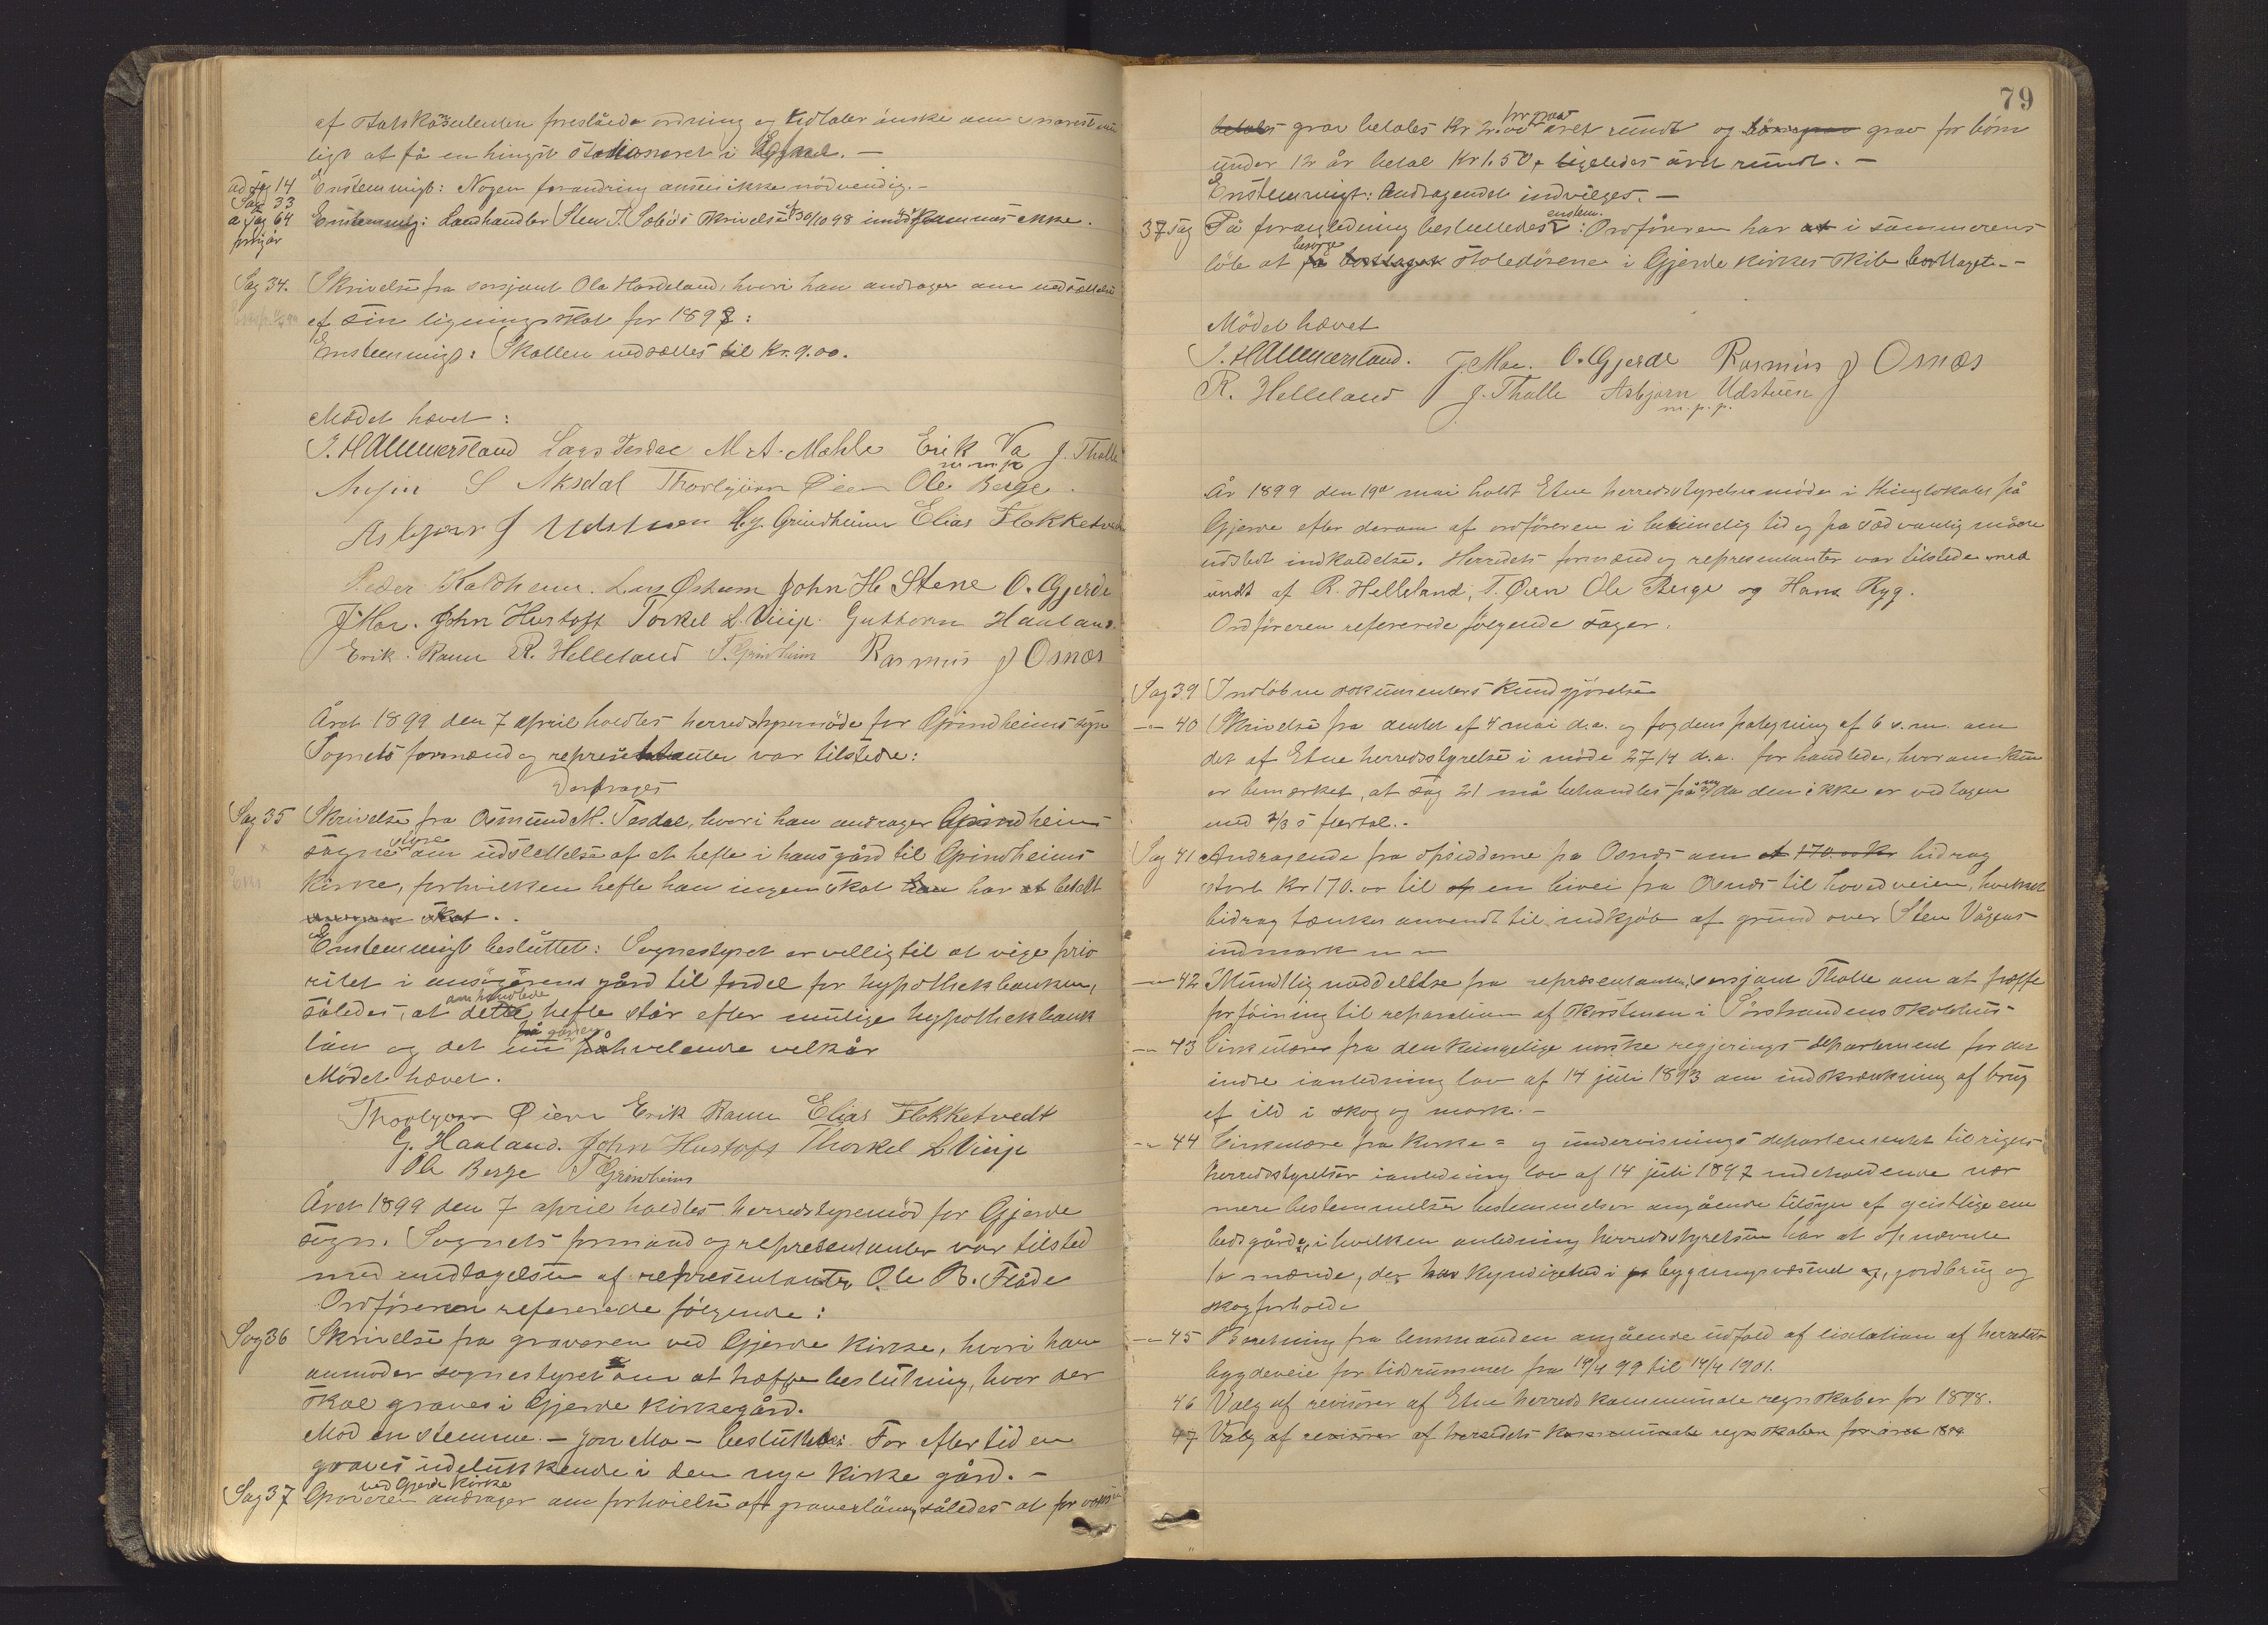 af statskonsulenten foreslåede ordning og udtaler ønske om snarest mu
ligt at få en hingst stationeret i Sognet. —
ad sag 14 Enstemmigt: Nogen forandring ansees ikke nödvendig. —
Sag 33
a sag 64 Enstemmig: Landhandler Sten T. Sæbös skrivelse af 30/10 98 imödekommes ikke.
forrigår
Sag 34. Skrivelse fra sersjant Ola Hardeland, hvori han andrager om nedsættelse
af sin ligningsskat for 1898:
Enstemmigt: Skatten nedsættes til Kr. 9.00.
Mødet hævet:
I. Hammersland Lars Tesdal M. A. Mæhle Erik Va J. Tholle
m n p
S Aksdal Thorbjörn Øien Ole Berge.
Asbjørn J Udstuen Hg. Grindheim Elias Flokketvedt
Peder Kaldheim. Lars Østrem John H. Stene O. Gjerde
J Moe. John Hustoft Torkel L. Vinje. Guttorm Haaland.
Erik Ramn R. Helleland T. Grindheim Rasmus J Osnæs
Året 1899 den 7 april holdtes herredstyremöde for Grindheims sogn
Sognets formænd og repræsentanter var tilstede:
Verdrages
Sag 35 Skrivelse fra Osmund M. Tesdal, hvori han andrager Grindheims
sogne styre om udslettelse af et hefte i hans gård til Grindheims
Kirke, forhvilken hefte han ingen skat har betalt
skat.
Enstemmigt besluttet: Sognestyret er villig til at vige prio
ritet i ansögerens gård til fordel for hypothekbanken,
således, at omhandlede hefte står efter mulige hypothekbank
lån og det nu på gården påhvilende vilkår
Mödet hævet.
Thorbjørn Øien Erik Ramn Elias Flokketvedt
G. Haaland. John Hustoft Thorkel L Vinje
Ole Berge T Grindheim
Året 1899 den 7 april holdtes herredstyremöd for Gjerde
sogn. Sognets formænd og repræsentanter var tilsted
med undtagelse af repræsentanter Ole B. Fløde
Ordföreren refererede følgende:
Sag 36 Skrivelse fra graveren ved Gjerde Kirke, hvori han
anmoder sognestyret om at træffe beslutning, hvor der
skal graves i Gjerde Kirkegård.
Mod en stemme — Jon Mo — besluttedes: For eftertiden
graves udelukkende i den nye Kirke gård. —
Sag 37 Graveren ved Gjerde Kirke andrager om forhöielse af graverlönen, således at for voksen
79
betales grav betales Kr 2.00 pr grav året rundt og grav for børn
under 12 år betal Kr 1.50, ligeledes året rundt. —
Enstemmigt: Andragendet indvilges. —
37 sag På foranledning besluttedes enstem.: Ordföreren har at i sommerens
løb at besørge få borttaget stoledörene i Gjerde Kirkes skib borttaget. —
Mödet hævet
I. Hammersland. J Moe. O. Gjerde Rasmus J Osnæs
R. Helleland J. Tholle Asbjørn Udstuen
m. p. p.
År 1899 den 19de mai holdt Etne herredsstyrelse möde i thinglokalet på
Gjerde efter derom af ordföreren i betimelig tid og på sædvanlig måde
udstedt indkaldelse. Herredets formænd og repræsentanter var tilstede und
undt af R. Helleland, T. Øien Ole Berge og Hans Ryg.
Ordföreren refererede fölgende sager.
Sag 39 Indløbne dokumenters kundgjörelse
— 40 Skrivelse fra amtet af 4 mai d.a. og fogdens påtegning af 6 s.m. om
det af Etne herredsstyrelse i möde 27/4 d.a. forhandlede, hvorom kun
er bemærket, at sag 21 må behandles på ny da den ikke er vedtagen
med 2/3 s flertal. -
Sag 41 Andragende fra opsidderne på Osnæs om et 170.00 Kr bidrag
stort Kr 170.00 til en bivei fra Osnæs til hovedveien, hvilket
bidrag tænkes anvendt til indkjøb af grund over Sten Vågens
indmark
— 42 Mundtlig meddelelse fra repræsentanten, sersjant Tholle om at træffe
forföining til reparation af skorstenen i Sørstrandens skolehus
— 43 Cirkulære fra den kongelige norske regjerings departement for det
indre i anledning lov af 14 juli 1893 om indskrænkning af brug
af ild i skog og mark. —
— 44 Cirkulære fra Kirke = og undervisnings departementet til rigets
herredsstyrelser i anledning lov af 14 juli 1897 indeholdende nær
mere bestemmelser bestemmelser angående tilsyn af geistlige em
bedsgårde, i hvilken anledning herredsstyrelsen har at opnævnte
to mænde, der har kyndighed i bygningsvæsenet, jordbrug og
skogforholde
— 45 Beretning fra lensmanden angående udfald af lisitation af herredets
bygdeveie for tidsrummet fra 14/4 99 til 14/4 1901.
46 Valg af revisorer af Etne herreds kommunale regnskaber for 1898.
47 Valg af revisorer af herredets kommunale regnskaber for året 1899